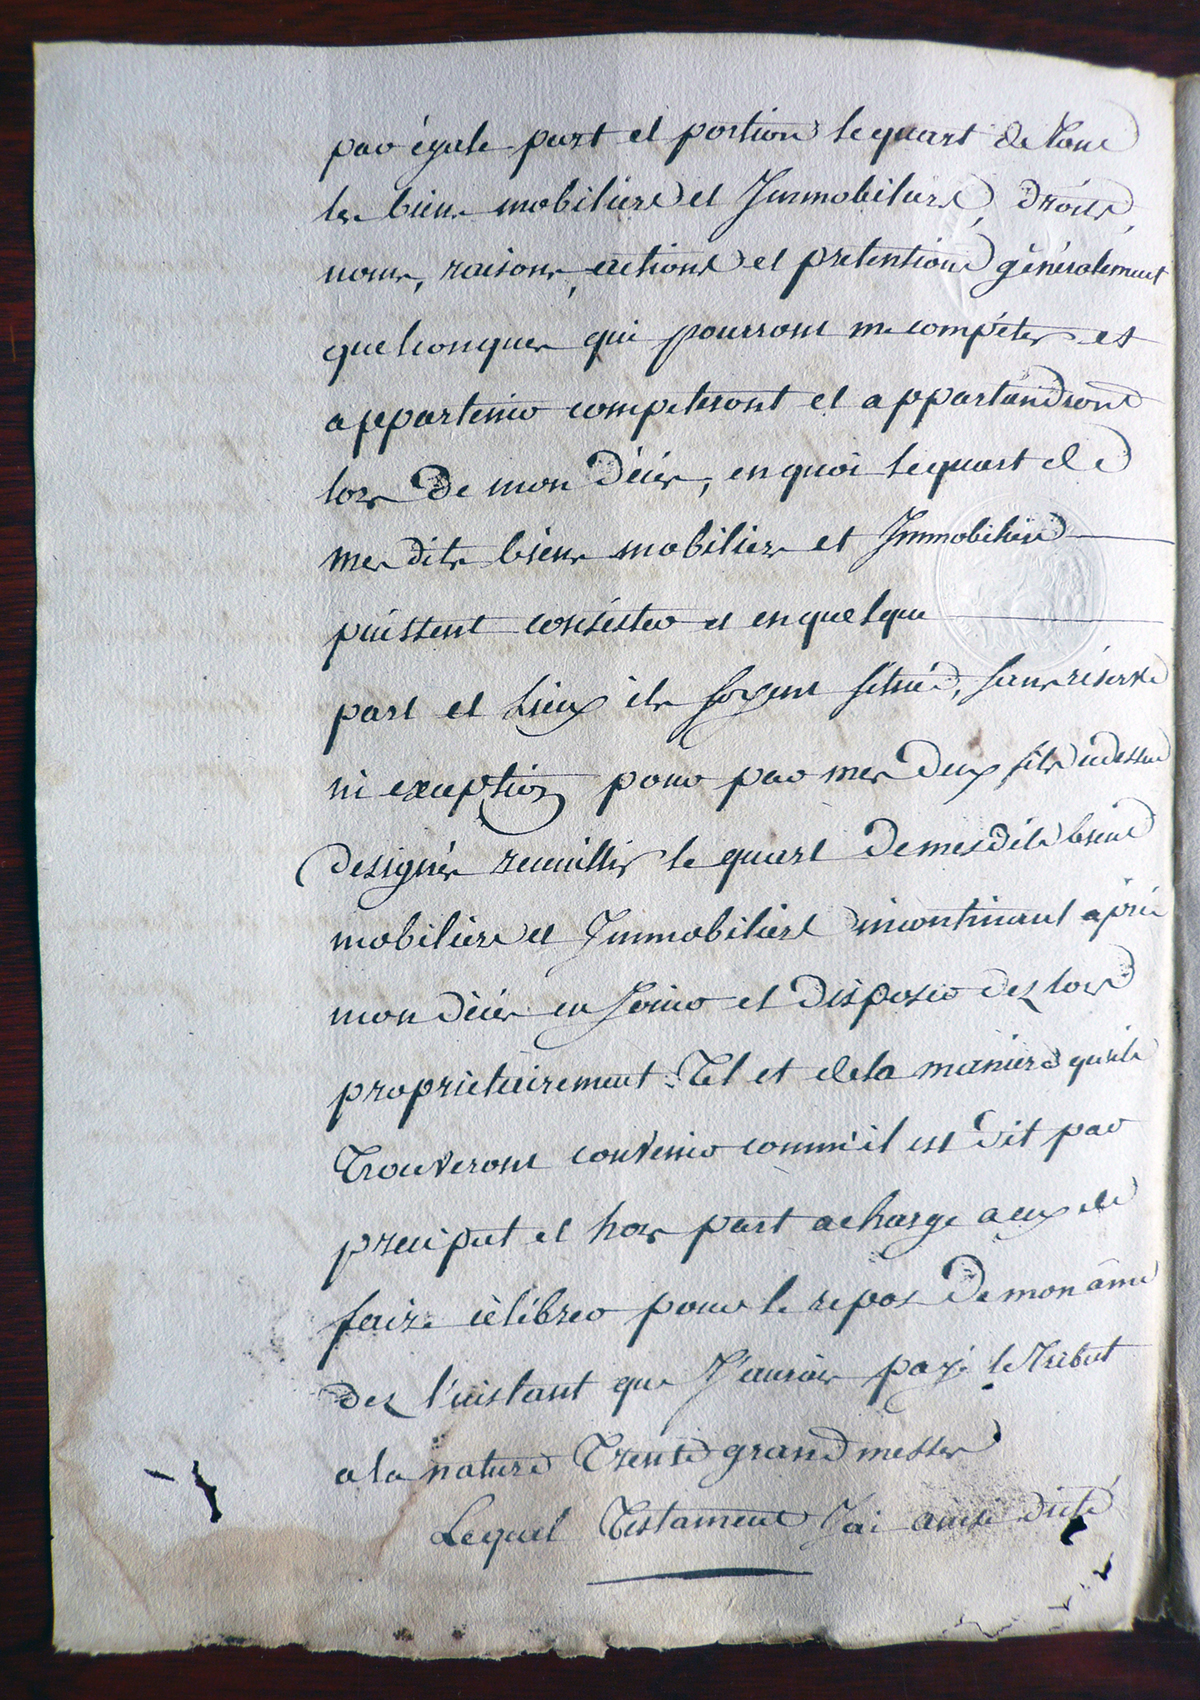 par égale part et portion le quart de tous
les biens mobiliers et Immobiliers, droits,
noms, raisons, actions et pretentions généralement
quelconques qui pourront me compéter et
appartenir competeront et appartandront
lors de mon décés, en quoi le quart de
mes dits biens mobiliers et Immobiliers
puissent consister et en quelque
part et Lieux ils soyent situés, sans réserve
ni exception pour par mes deux fils cidessus
designés receuillir le quart de mes dits biens
mobiliers et Immobiliers incontinant aprés
mon décés en Joüir et disposer dez lors
proprietairement Tel et dela maniere quils
Trouveront convenir comm'il est dit par
preciput et hors part acharge a eux de
faire célébrer pour le repos de mon âme
dez l'instant que J'aurais payé le Tribut
a la nature Trente grand messes
Lequel Testament J'ai ainsi dicté